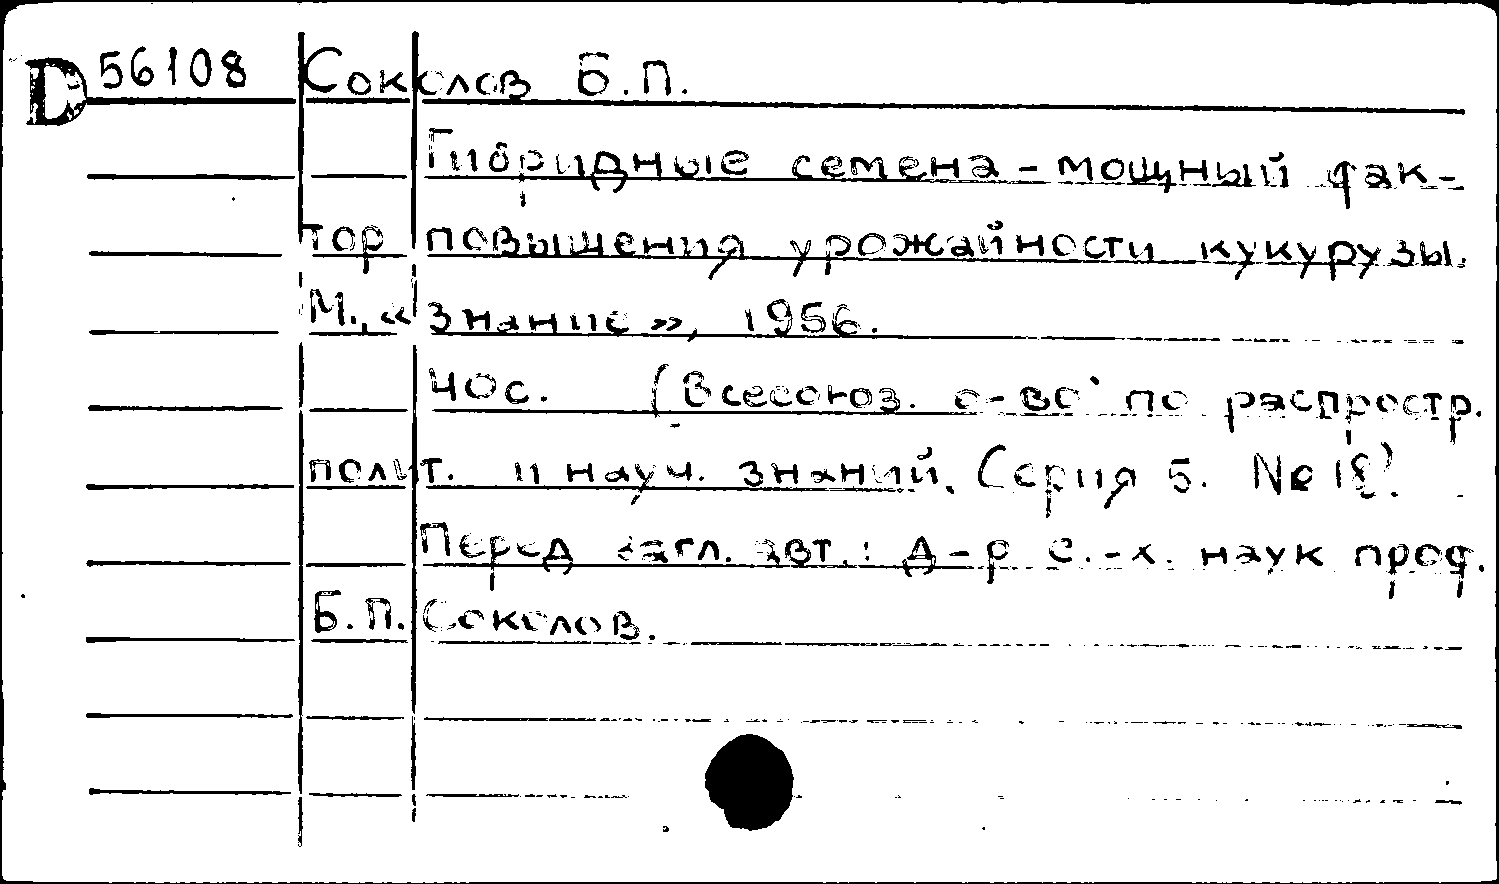 D 56108 Соколов Б.П.
Гибридные семена - мощный фак-
тор повышения урожайности кукурузы.
М., «Знание», 1956.
40с. (Всесоюз. о-во по распростр.
полит. и науч. знаний. Серия 5. № 18).
Перед загл. авт.: д-р с.-х. наук проф.
Б.П. Соколов.